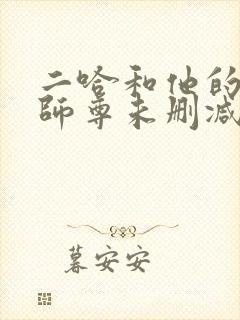 二哈和他的
师尊未删减
暮安安